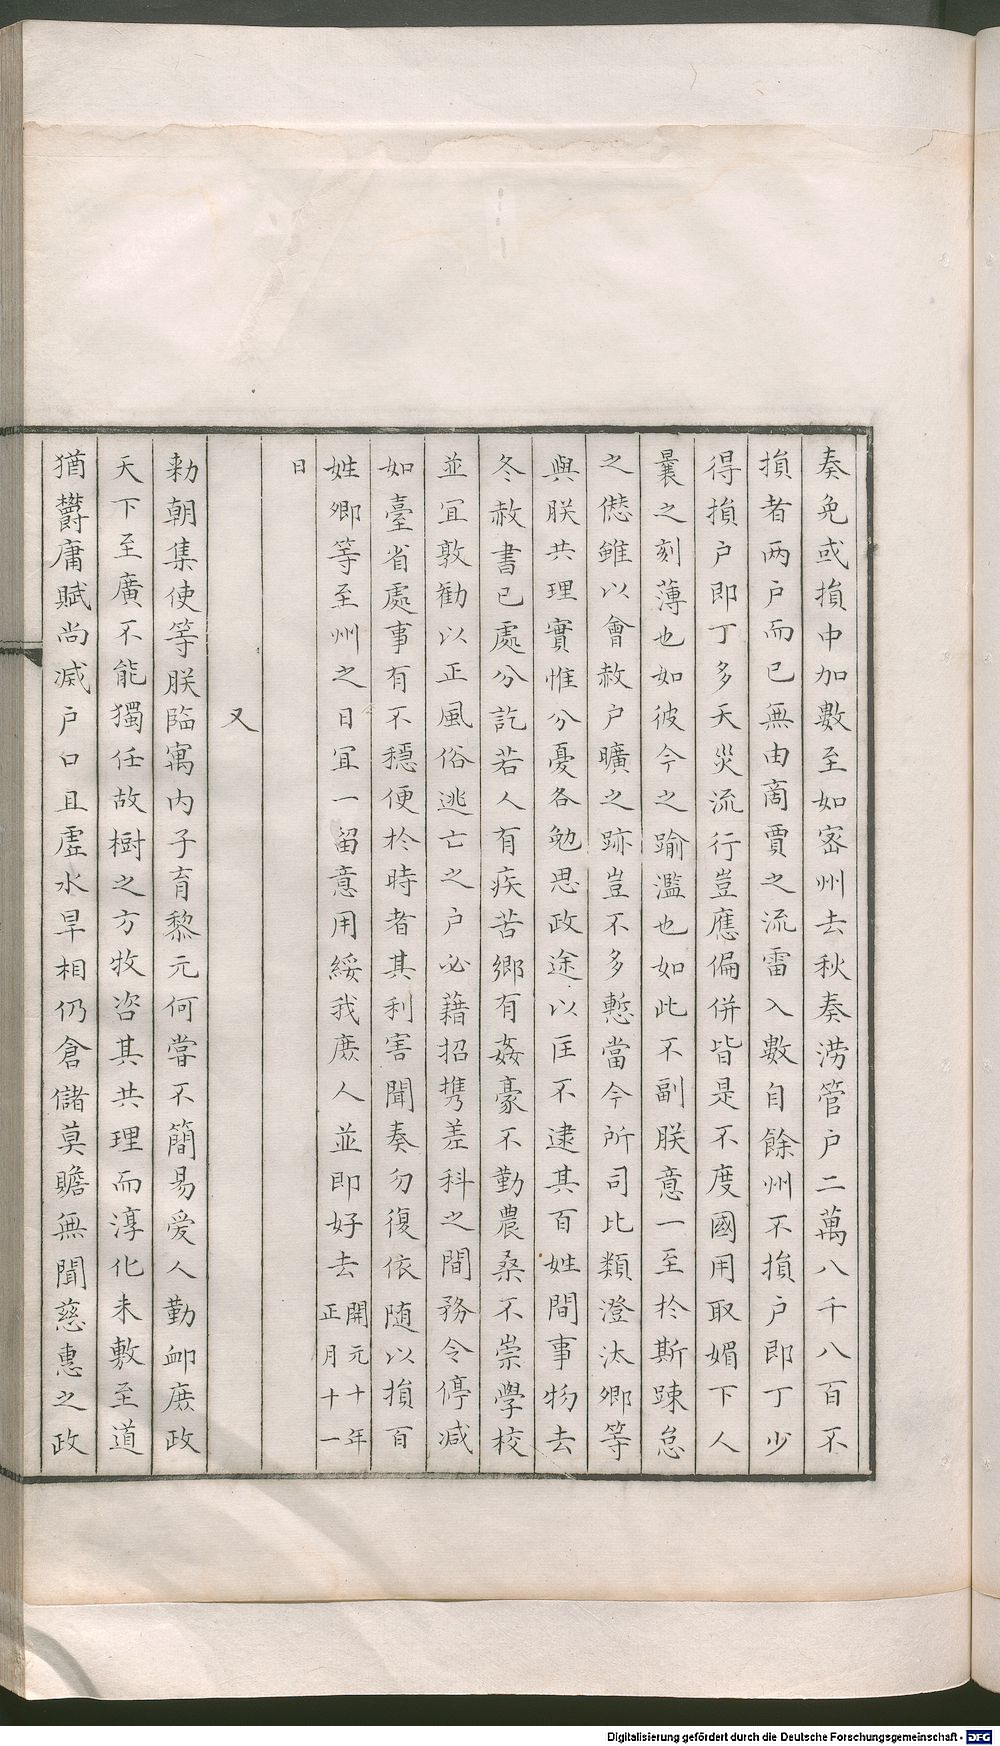 奏免或損中加數至如密州去秋奏澇管户二萬八千八百不
損者两户而已無由啇賈之流雷入數自餘州不損户即丁少
得損户即丁多天災流行豈應偏併皆是不度國用取媚下人
曩之刻薄也如彼今之踰濫也如此不副朕意一至扵斯踈怠
之僁雖以會赦户曠之跡豈不多慙當今所司比類澄汰卿等
與朕共理實惟分憂各勉思政途以匡不逮其百姓間事物去
冬赦書已處分訖若人有疾苦鄉有姦豪不勤農桑不崇學校
並冝敦勸以正風俗逃亡之户必藉招携差科之間務令停減
如臺省處事有不穩便扵時者其利害聞奏勿復依随以損百
姓卿等至州之日冝一留意用綏我庶人並即好去開元十年
正月十一
日
又
勑朝集使等朕臨寓内子育黎元何嘗不簡易爱人勤卹庶政
天下至廣不能獨任故樹之方牧咨其共理而淳化未敷至道
猶欝庸賦尚减户口且虚水旱相仍倉儲莫贍無聞慈惠之政
Digitalisierung gefördert durch die Deutsche Forschungsgemeinschaft - DFG